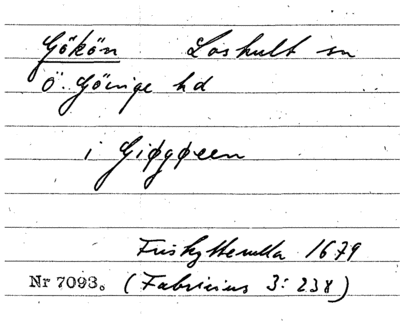 Gökön Loshult sn
Ö. Göinge hd
i Giøgøeen
Friskytterulla 1679
Nr 7093. (Fabricius 3: 238)